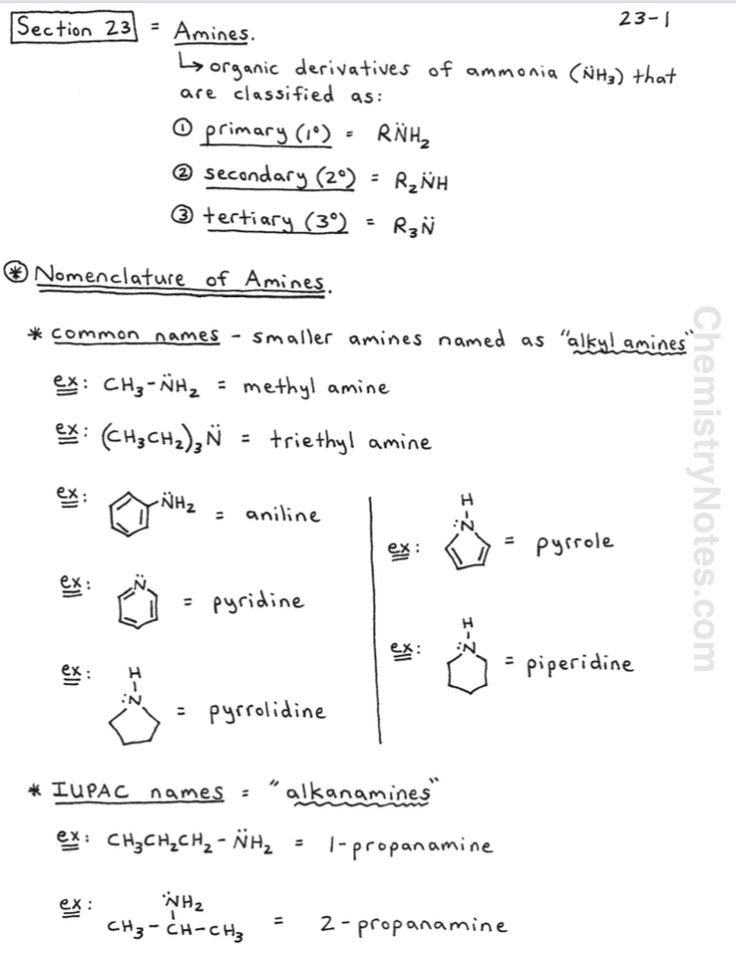 Section 23 = Amines. 23-1
↳ organic derivatives of ammonia (N̈H₃) that
are classified as:
① primary (1°) = RN̈H₂
② secondary (2°) = R₂N̈H
③ tertiary (3°) = R₃N̈
⊛ Nomenclature of Amines.
* common names - smaller amines named as "alkyl amines"
ex: CH₃-N̈H₂ = methyl amine
ex: (CH₃CH₂)₃N̈ = triethyl amine
ex: N̈H₂ = aniline
ex: H :N = pyrrole
ex: N̈ = pyridine
ex: H :N = piperidine
ex: H :N = pyrrolidine
* IUPAC names = "alkanamines"
ex: CH₃CH₂CH₂-N̈H₂ = 1-propanamine
ex: N̈H₂
CH₃-CH-CH₃ = 2-propanamine
ChemistryNotes.com